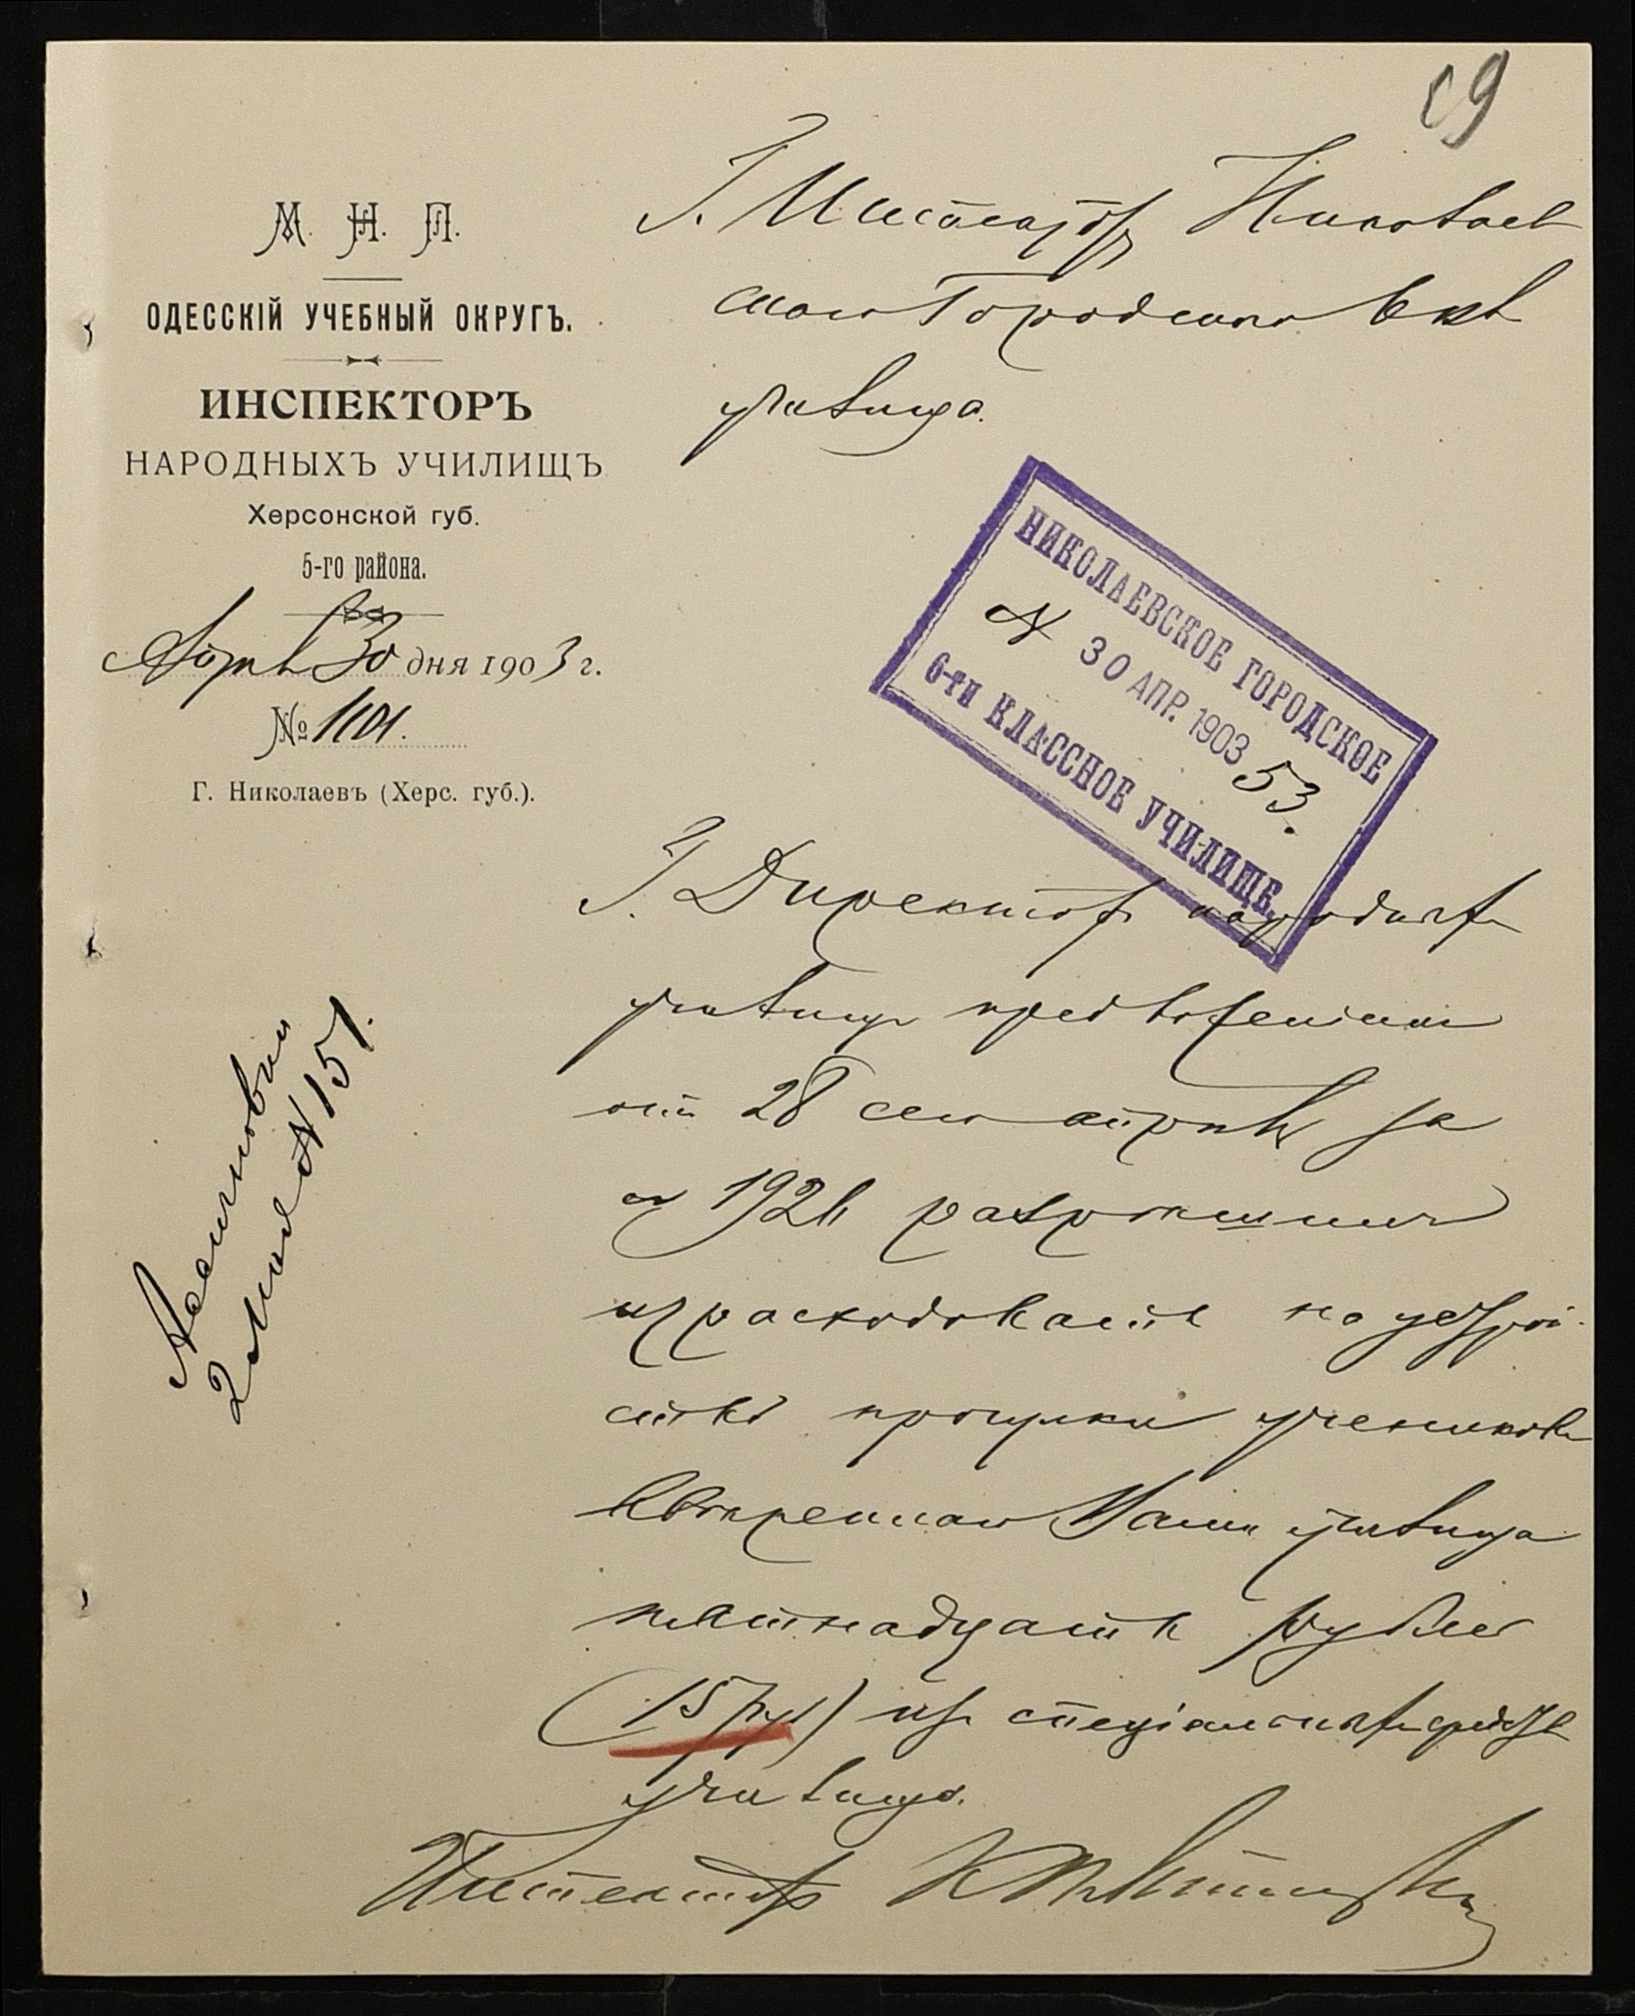 М. Н. П.
ОДЕССКІЙ УЧЕБНЫЙ ОКРУГЪ.
ИНСПЕКТОРЪ
НАРОДНЫХЪ УЧИЛИЩЪ
Херсонской губ.
5-го района.
30 дня 1903 г.
№ 1101.
Г. Николаевъ (Херс. губ.).
Г. Инспектору Николаев
скаго Городского 6 кл
училища.
НИКОЛАЕВСКОЕ ГОРОДСКОЕ
N 30 АПР. 1903 53.
6-ти КЛАССНОЕ УЧИЛИЩЕ.
Г. Директоръ народныхъ
училищъ предложеніемъ
отъ 28 сего апрѣля за
№ 1926 разрѣшилъ
израсходовать на устрой-
ство прогулки учениковъ
ввѣреннаго Вамъ училища
пятнадцать рублей
(15 руб) изъ спеціальныхъ средствъ
училища.
Инспекторъ
2 Мая N 151.